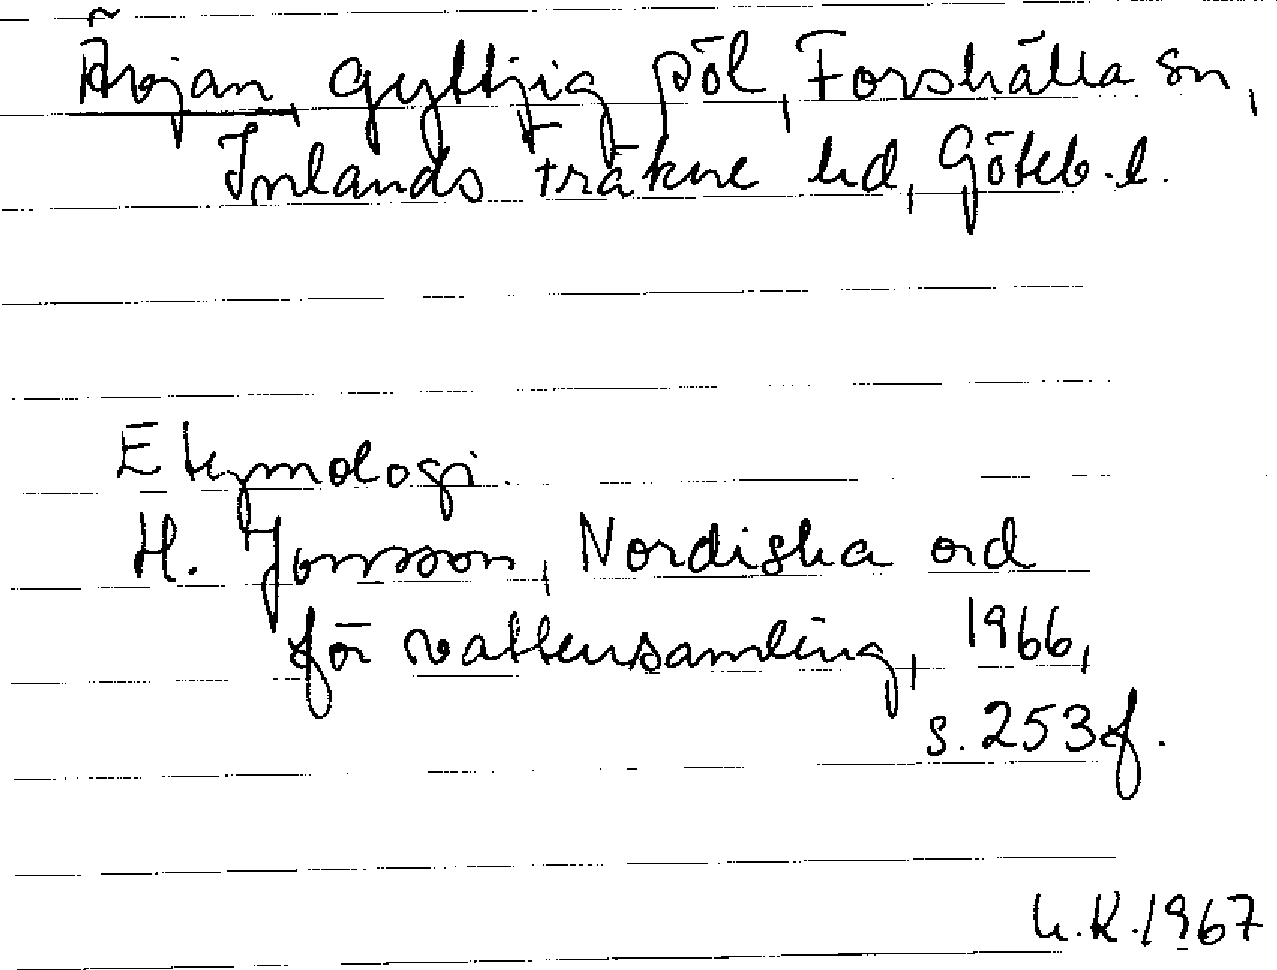 Ärojan, gyttjig pöl, Forshälla sn,
Inlands Fräkne hd, Göteb. l.
Etymologi.
H. Jonsson, Nordiska ord
för vattensamling, 1966,
s. 253 f.
h.K. 1967